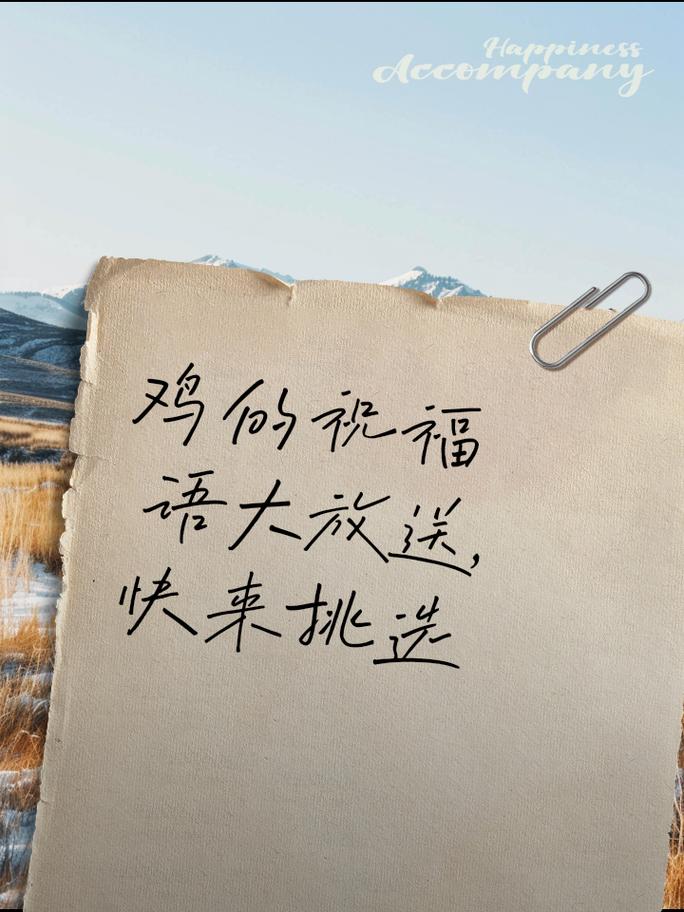 Happiness
Accompany
鸡的祝福
语大放送,
快来挑选